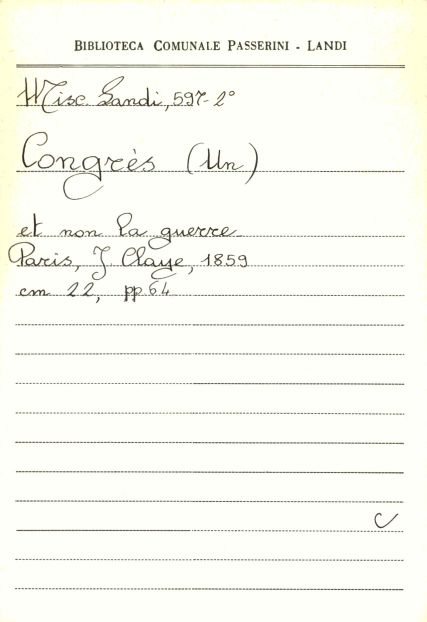 BIBLIOTECA COMUNALE PASSERINI - LANDI
Misc. Landi, 597-2°
Congrès (Un)
et non la guerre
Paris, J. Claye, 1859
cm 22, pp 64
C